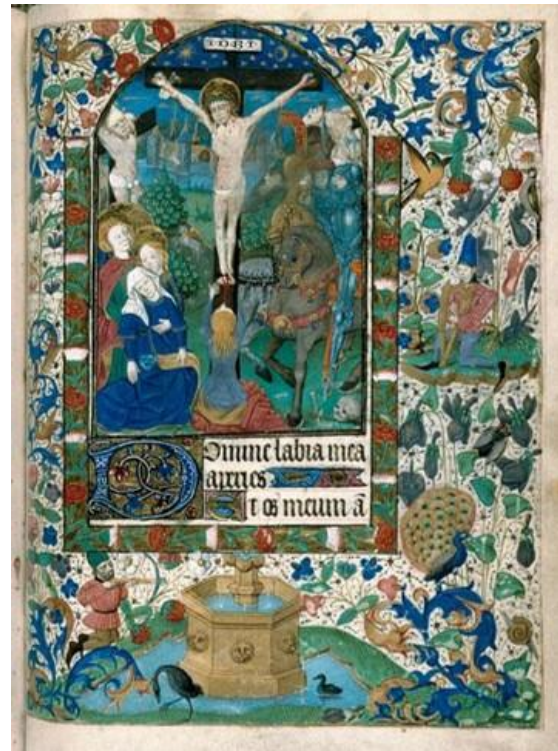 Domine labia mea
aperies
Et os meum ā